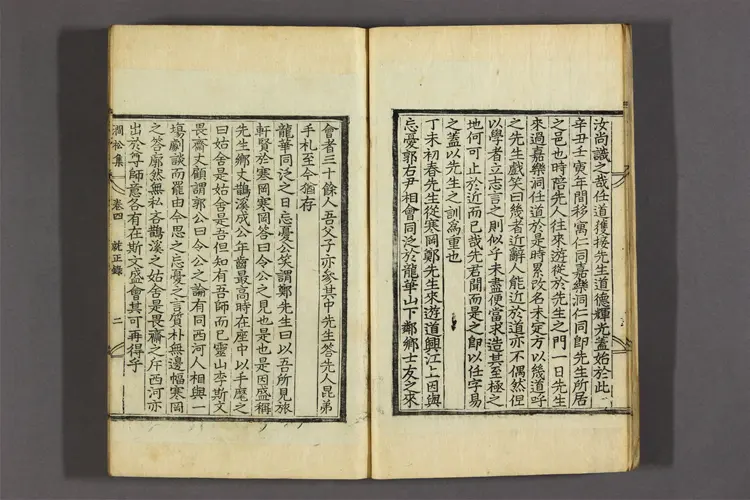 汝尚識之哉任道獲接先生道德輝光蓋始於此
辛丑壬寅年間移寓仁同嘉樂洞仁同卽先生所居
之邑也時陪先人往來遊從於先生之門一日先生
來過嘉樂洞任道於是時累改名未定方以幾道呼
之先生戲笑曰幾者近辭人能近於道亦不偶然但
以學者立志言之則似乎未盡便當求造其至極之
地何可止於近而已哉先君聞而是之卽以任字易
之蓋以先生之訓爲重也
丁未初春先生從寒岡鄭先生來遊道興江上因與
忘憂郭右尹相會同泛於龍華山下鄰鄉士友之來
會者三十餘人吾父子亦參其中先生答先人昆弟
手札至今猶存
龍華同泛之日忘憂公笑謂鄭先生曰以吾所見旅
軒賢於寒岡寒岡答曰令公之見也是也是因盛稱
先生鄉丈鵲溪成公年齒最高時在座中以手麾之
曰姑舍是姑舍是吾但知有吾師而已靈山李斯文
畏齋丈顧謂郭公曰令公之論有同西河人相與一
塲劇談而罷由今思之忘憂之言質朴無邊幅寒岡
之答廓然無私吝鵲溪之姑舍是畏齋之斥西河亦
出於尊師意各有在斯文盛會其可再得乎
澗松集 卷四 就正錄 二